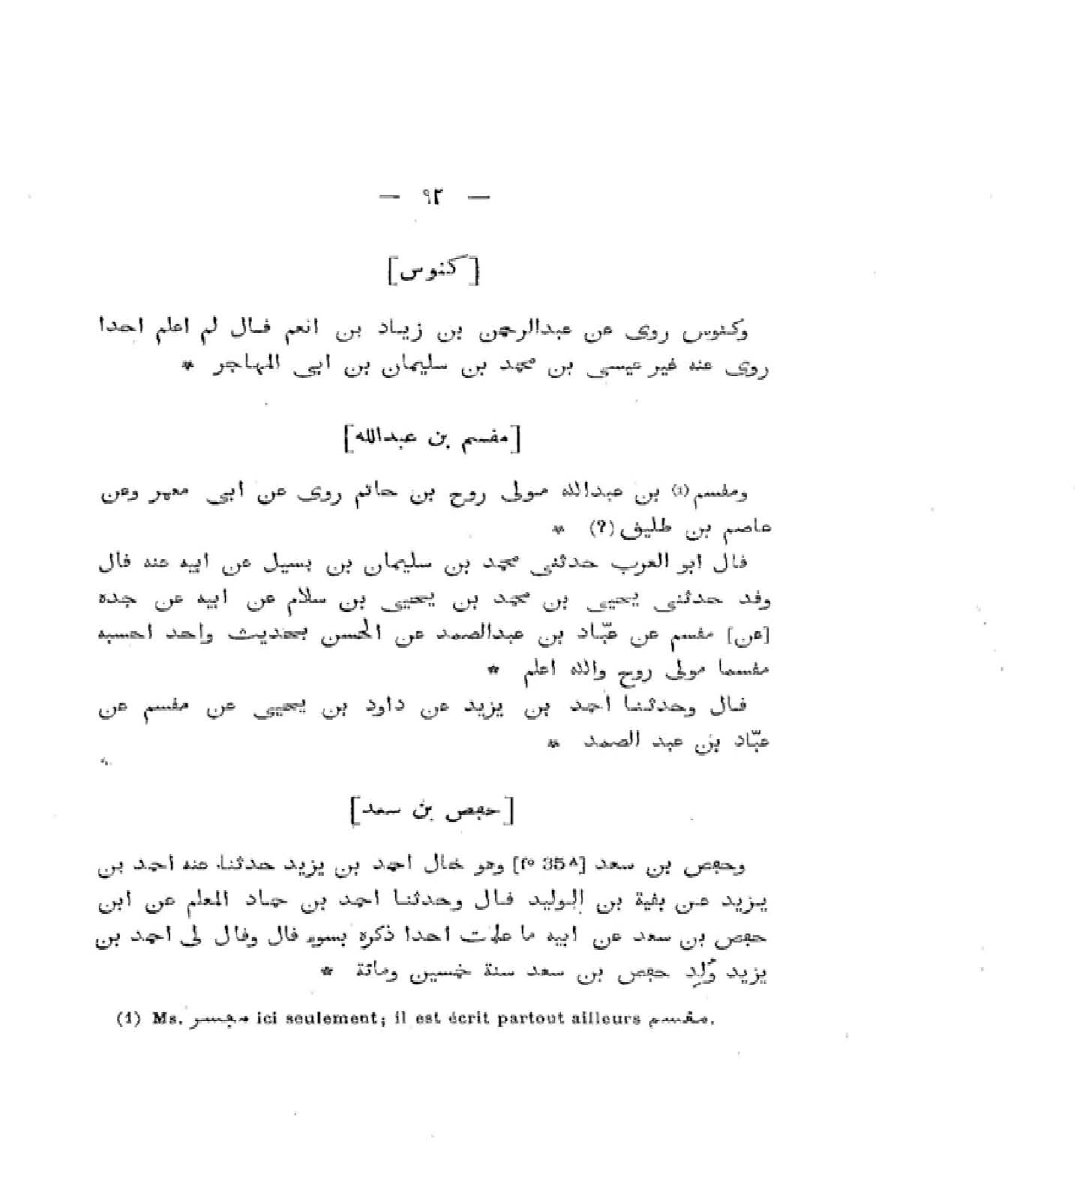 — ٩٢ —
[كنوس]
وكنوس روى عن عبدالرحمن بن زياد بن انعم قال لم اعلم احدا
روى عنه غير عيسى بن محمد بن سليمان بن ابى المهاجر *
[مقسم بن عبدالله]
ومقسم(1) بن عبدالله مولى روح بن حاتم روى عن ابى معمر وعن
عاصم بن طليق(?) *
قال ابو العرب حدثنى محمد بن سليمان بن بسيل عن ابيه عنه قال
وقد حدثنى يحيى بن محمد بن يحيى بن سلام عن ابيه عن جده
[عن] مقسم عن عبّاد بن عبدالصمد عن الحسن بحديث واحد احسبه
مقسما مولى روح والله اعلم *
قال وحدثنا احمد بن يزيد عن داود بن يحيى عن مقسم عن
عبّاد بن عبد الصمد *
[حفص بن سعد]
وحفص بن سعد [fº 35ᴬ] وهو خال احمد بن يزيد حدثنا عنه احمد بن
يزيد عن بقية بن الوليد قال وحدثنا احمد بن حماد المعلم عن ابن
حفص بن سعد عن ابيه ما علمت احدا ذكره بسوء قال وقال لى احمد بن
يزيد وُلِد حفص بن سعد سنة خمسين ومائة *
(1) Ms. مفسر ici seulement; il est écrit partout ailleurs مقسم.